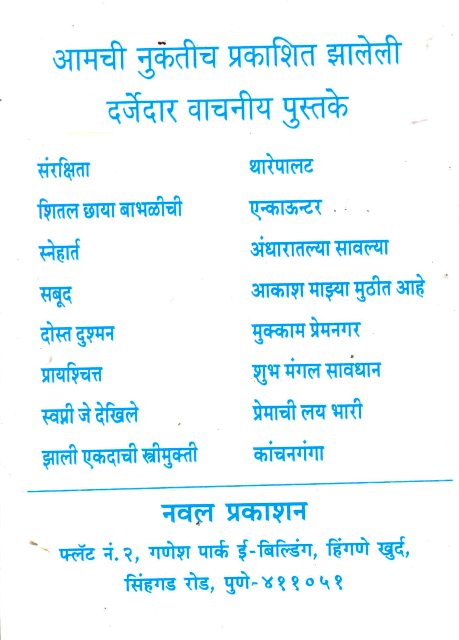 आमची नुकतीच प्रकाशित झालेली
दर्जेदार वाचनीय पुस्तके
संरक्षिता
शितल छाया बाभळीची
स्नेहार्त
सबूद
दोस्त दुश्मन
प्रायश्चित्त
स्वप्नी जे देखिले
झाली एकदाची स्त्रीमुक्ती
थारेपालट
एन्काऊन्टर
अंधारातल्या सावल्या
आकाश माझ्या मुठीत आहे
मुक्काम प्रेमनगर
शुभ मंगल सावधान
प्रेमाची लय भारी
कांचनगंगा
नवल प्रकाशन
फ्लॅट नं. २, गणेश पार्क ई-बिल्डिंग, हिंगणे खुर्द,
सिंहगड रोड, पुणे-४११०५१